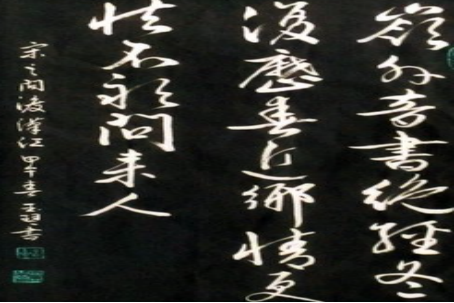 嶺外音書絕經冬
復歷春近鄉情更
怯不敢問来人
宋之問渡漢江甲午春書